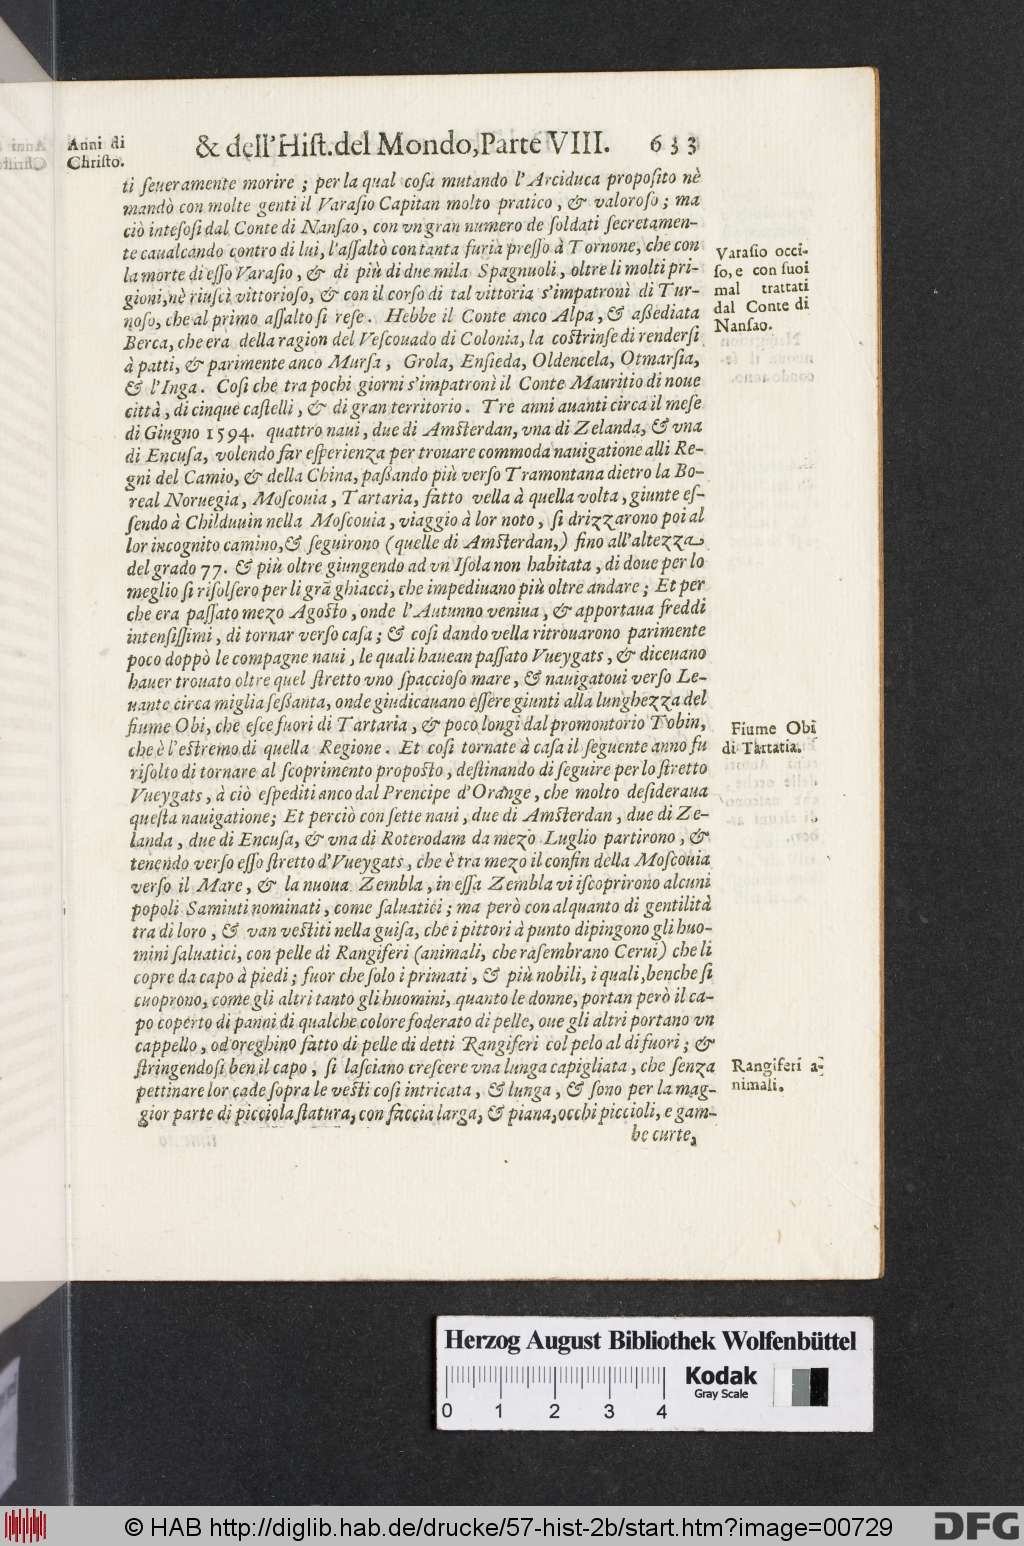 Anni di
Christo.
& dell'Hist. del Mondo, Parte VIII. 633
ti ſeueramente morire; per la qual coſa mutando l'Arciduca propoſito nè
mandò con molte genti il Varaſio Capitan molto pratico, & valoroſo; ma
ciò inteſoſi dal Conte di Nanſao, con vn gran numero de ſoldati ſecretamen-
te caualcando contro di lui, l'aſſaltò con tanta furia preſſo à Tornone, che con
la morte di eſſo Varaſio, & di più di due mila Spagnuoli, oltre li molti pri-
gioni, nè riuſcì vittorioſo, & con il corſo di tal vittoria s'impatronì di Tur-
noſo, che al primo aſſalto ſi reſe. Hebbe il Conte anco Alpa, & aſſediata
Berca, che era della ragion del Veſcouado di Colonia, la coſtrinſe di renderſi
à patti, & parimente anco Murſa, Grola, Enſieda, Oldencela, Otmarſia,
& l'Inga. Coſi che tra pochi giorni s'impatronì il Conte Mauritio di noue
città, di cinque caſtelli, & di gran territorio. Tre anni auanti circa il meſe
di Giugno 1594. quattro naui, due di Amſterdan, vna di Zelanda, & vna
di Encuſa, volendo far eſperienza per trouare commoda nauigatione alli Re-
gni del Camio, & della China, paſſando più verſo Tramontana dietro la Bo-
real Noruegia, Moſcouia, Tartaria, fatto vella à quella volta, giunte eſ-
ſendo à Childuuin nella Moſcouia, viaggio à lor noto, ſi drizzarono poi al
lor incognito camino, & ſeguirono (quelle di Amſterdan,) fino all'altezza
del grado 77. & più oltre giungendo ad vn Iſola non habitata, di doue per lo
meglio ſi riſolſero per li grã ghiacci, che impediuano più oltre andare; Et per
che era paſſato mezo Agoſto, onde l'Autunno veniua, & apportaua freddi
intenſiſſimi, di tornar verſo caſa; & coſi dando vella ritrouarono parimente
poco doppò le compagne naui, le quali hauean paſſato Vueygats, & diceuano
hauer trouato oltre quel ſtretto vno ſpaccioſo mare, & nauigatoui verſo Le-
uante circa miglia ſeſſanta, onde giudicauano eſſere giunti alla lunghezza del
fiume Obi, che eſce fuori di Tartaria, & poco longi dal promontorio Tobin,
che è l'eſtremo di quella Regione. Et coſi tornate à caſa il ſeguente anno fu
riſolto di tornare al ſcoprimento propoſto, deſtinando di ſeguire per lo ſtretto
Vueygats, à ciò eſpediti anco dal Prencipe d'Orange, che molto deſideraua
queſta nauigatione; Et perciò con ſette naui, due di Amſterdan, due di Ze-
landa, due di Encuſa, & vna di Roterodam da mezo Luglio partirono, &
tenendo verſo eſſo ſtretto d'Vueygats, che è tra mezo il confin della Moſcouia
verſo il Mare, & la nuoua Zembla, in eſſa Zembla vi iſcoprirono alcuni
popoli Samiuti nominati, come ſaluatici; ma però con alquanto di gentilità
tra di loro, & van veſtiti nella guiſa, che i pittori à punto dipingono gli huo-
mini ſaluatici, con pelle di Rangiferi (animali, che raſembrano Cerui) che li
copre da capo à piedi; fuor che ſolo i primati, & più nobili, i quali, benche ſi
cuoprono, come gli altri tanto gli huomini, quanto le donne, portan però il ca-
po coperto di panni di qualche colore foderato di pelle, oue gli altri portano vn
cappello, od oreghino fatto di pelle di detti Rangiferi col pelo al di fuori; &
ſtringendoſi ben il capo, ſi laſciano creſcere vna lunga capigliata, che ſenza
pettinare lor cade ſopra le veſti coſi intricata, & lunga, & ſono per la mag-
gior parte di picciola ſtatura, con faccia larga, & piana, occhi piccioli, e gam-
be curte,
Varaſio occi-
ſo, e con ſuoi
mal trattati
dal Conte di
Nanſao.
Fiume Obi
di Tartatia.
Rangiferi a-
nimali.
Herzog August Bibliothek Wolfenbüttel
0 1 2 3 4
Kodak
Gray Scale
© HAB http://diglib.hab.de/drucke/57-hist-2b/start.htm?image=00729
DFG